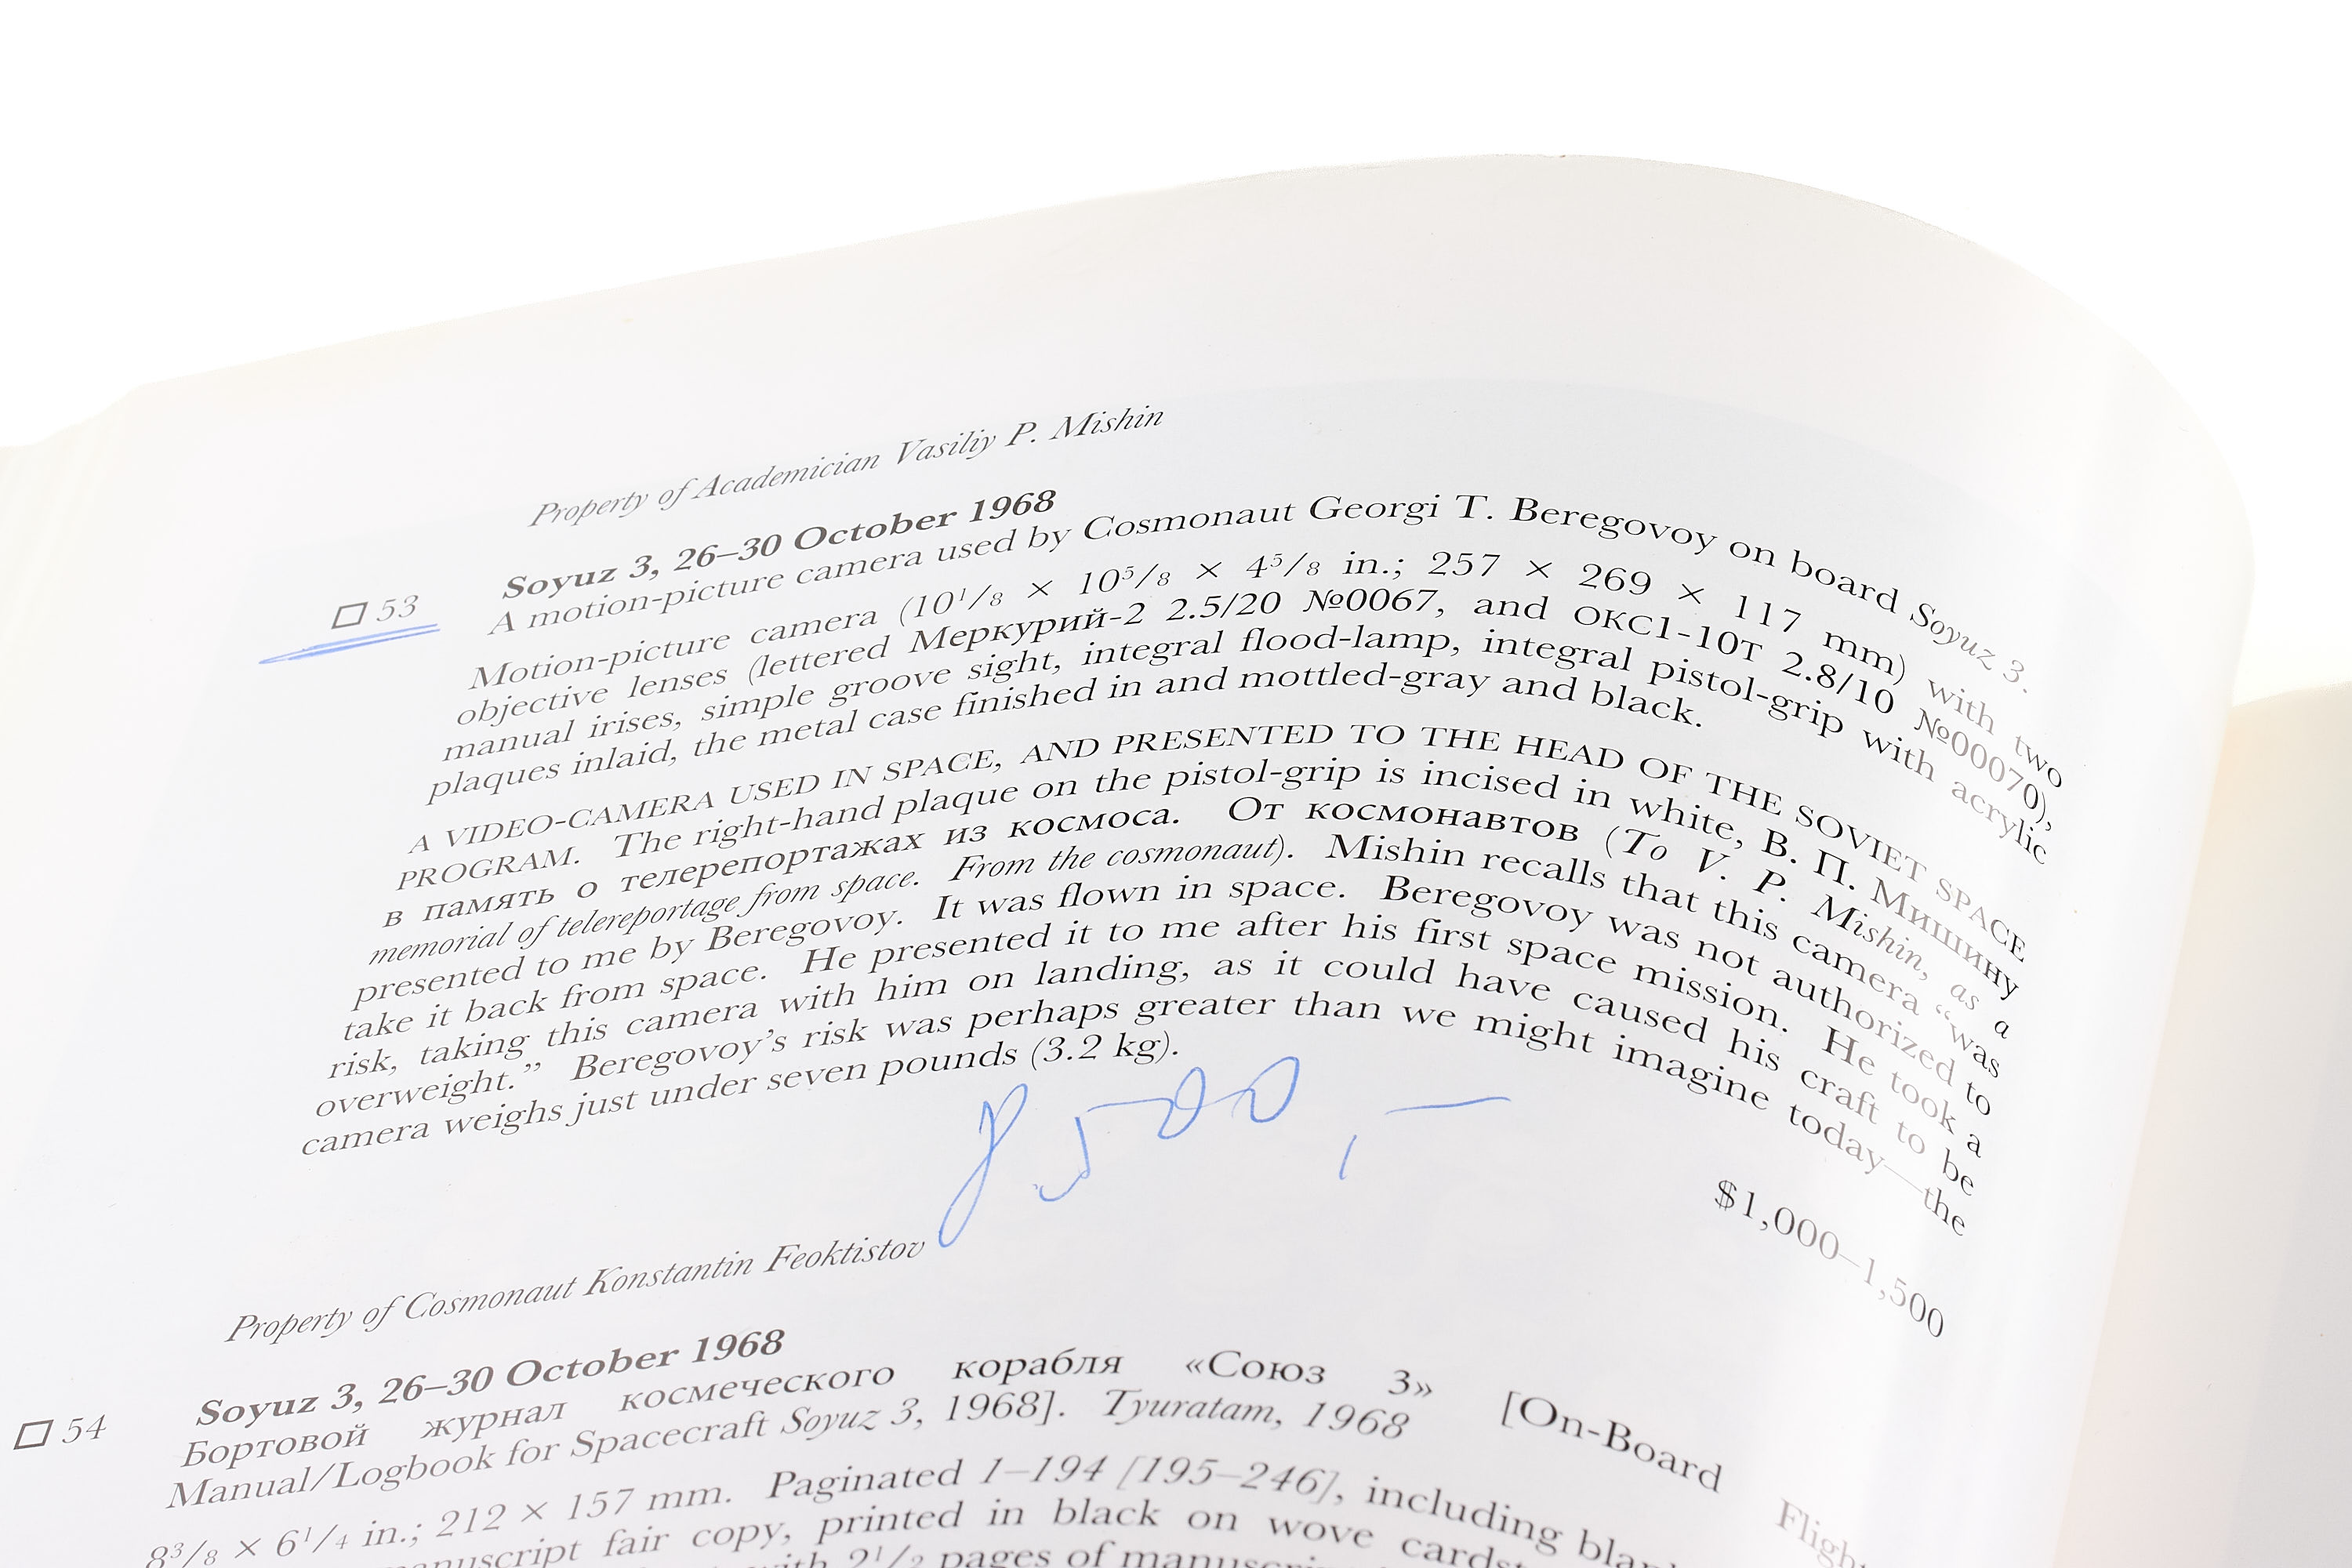 Property of Academician Vasiliy P. Mishin
□ 53
Soyuz 3, 26–30 October 1968
A motion-picture camera used by Cosmonaut Georgi T. Beregovoy on board Soyuz 3.
Motion-picture camera (10¹/₈ × 10⁵/₈ × 4⁵/₈ in.; 257 × 269 × 117 mm) with two
objective lenses (lettered Меркурий-2 2.5/20 №0067, and ОКС1-10т 2.8/10 №00070),
manual irises, simple groove sight, integral flood-lamp, integral pistol-grip with acrylic
plaques inlaid, the metal case finished in and mottled-gray and black.
A VIDEO-CAMERA USED IN SPACE, AND PRESENTED TO THE HEAD OF THE SOVIET SPACE
PROGRAM. The right-hand plaque on the pistol-grip is incised in white, В. П. Мишину
в память о телерепортажах из космоса. От космонавтов (To V. P. Mishin, as a
memorial of telereportage from space. From the cosmonaut). Mishin recalls that this camera “was
presented to me by Beregovoy. It was flown in space. Beregovoy was not authorized to
take it back from space. He presented it to me after his first space mission. He took a
risk, taking this camera with him on landing, as it could have caused his craft to be
overweight.” Beregovoy’s risk was perhaps greater than we might imagine today—the
camera weighs just under seven pounds (3.2 kg).
8500,–
$1,000–1,500
Property of Cosmonaut Konstantin Feoktistov
□ 54
Soyuz 3, 26–30 October 1968
Бортовой журнал космеческого корабля «Союз 3» [On-Board Flight
Manual/Logbook for Spacecraft Soyuz 3, 1968]. Tyuratam, 1968
8³/₈ × 6¹/₄ in.; 212 × 157 mm. Paginated 1–194 [195–246], including
fair copy, printed in black on wove
2¹/₂ pages of